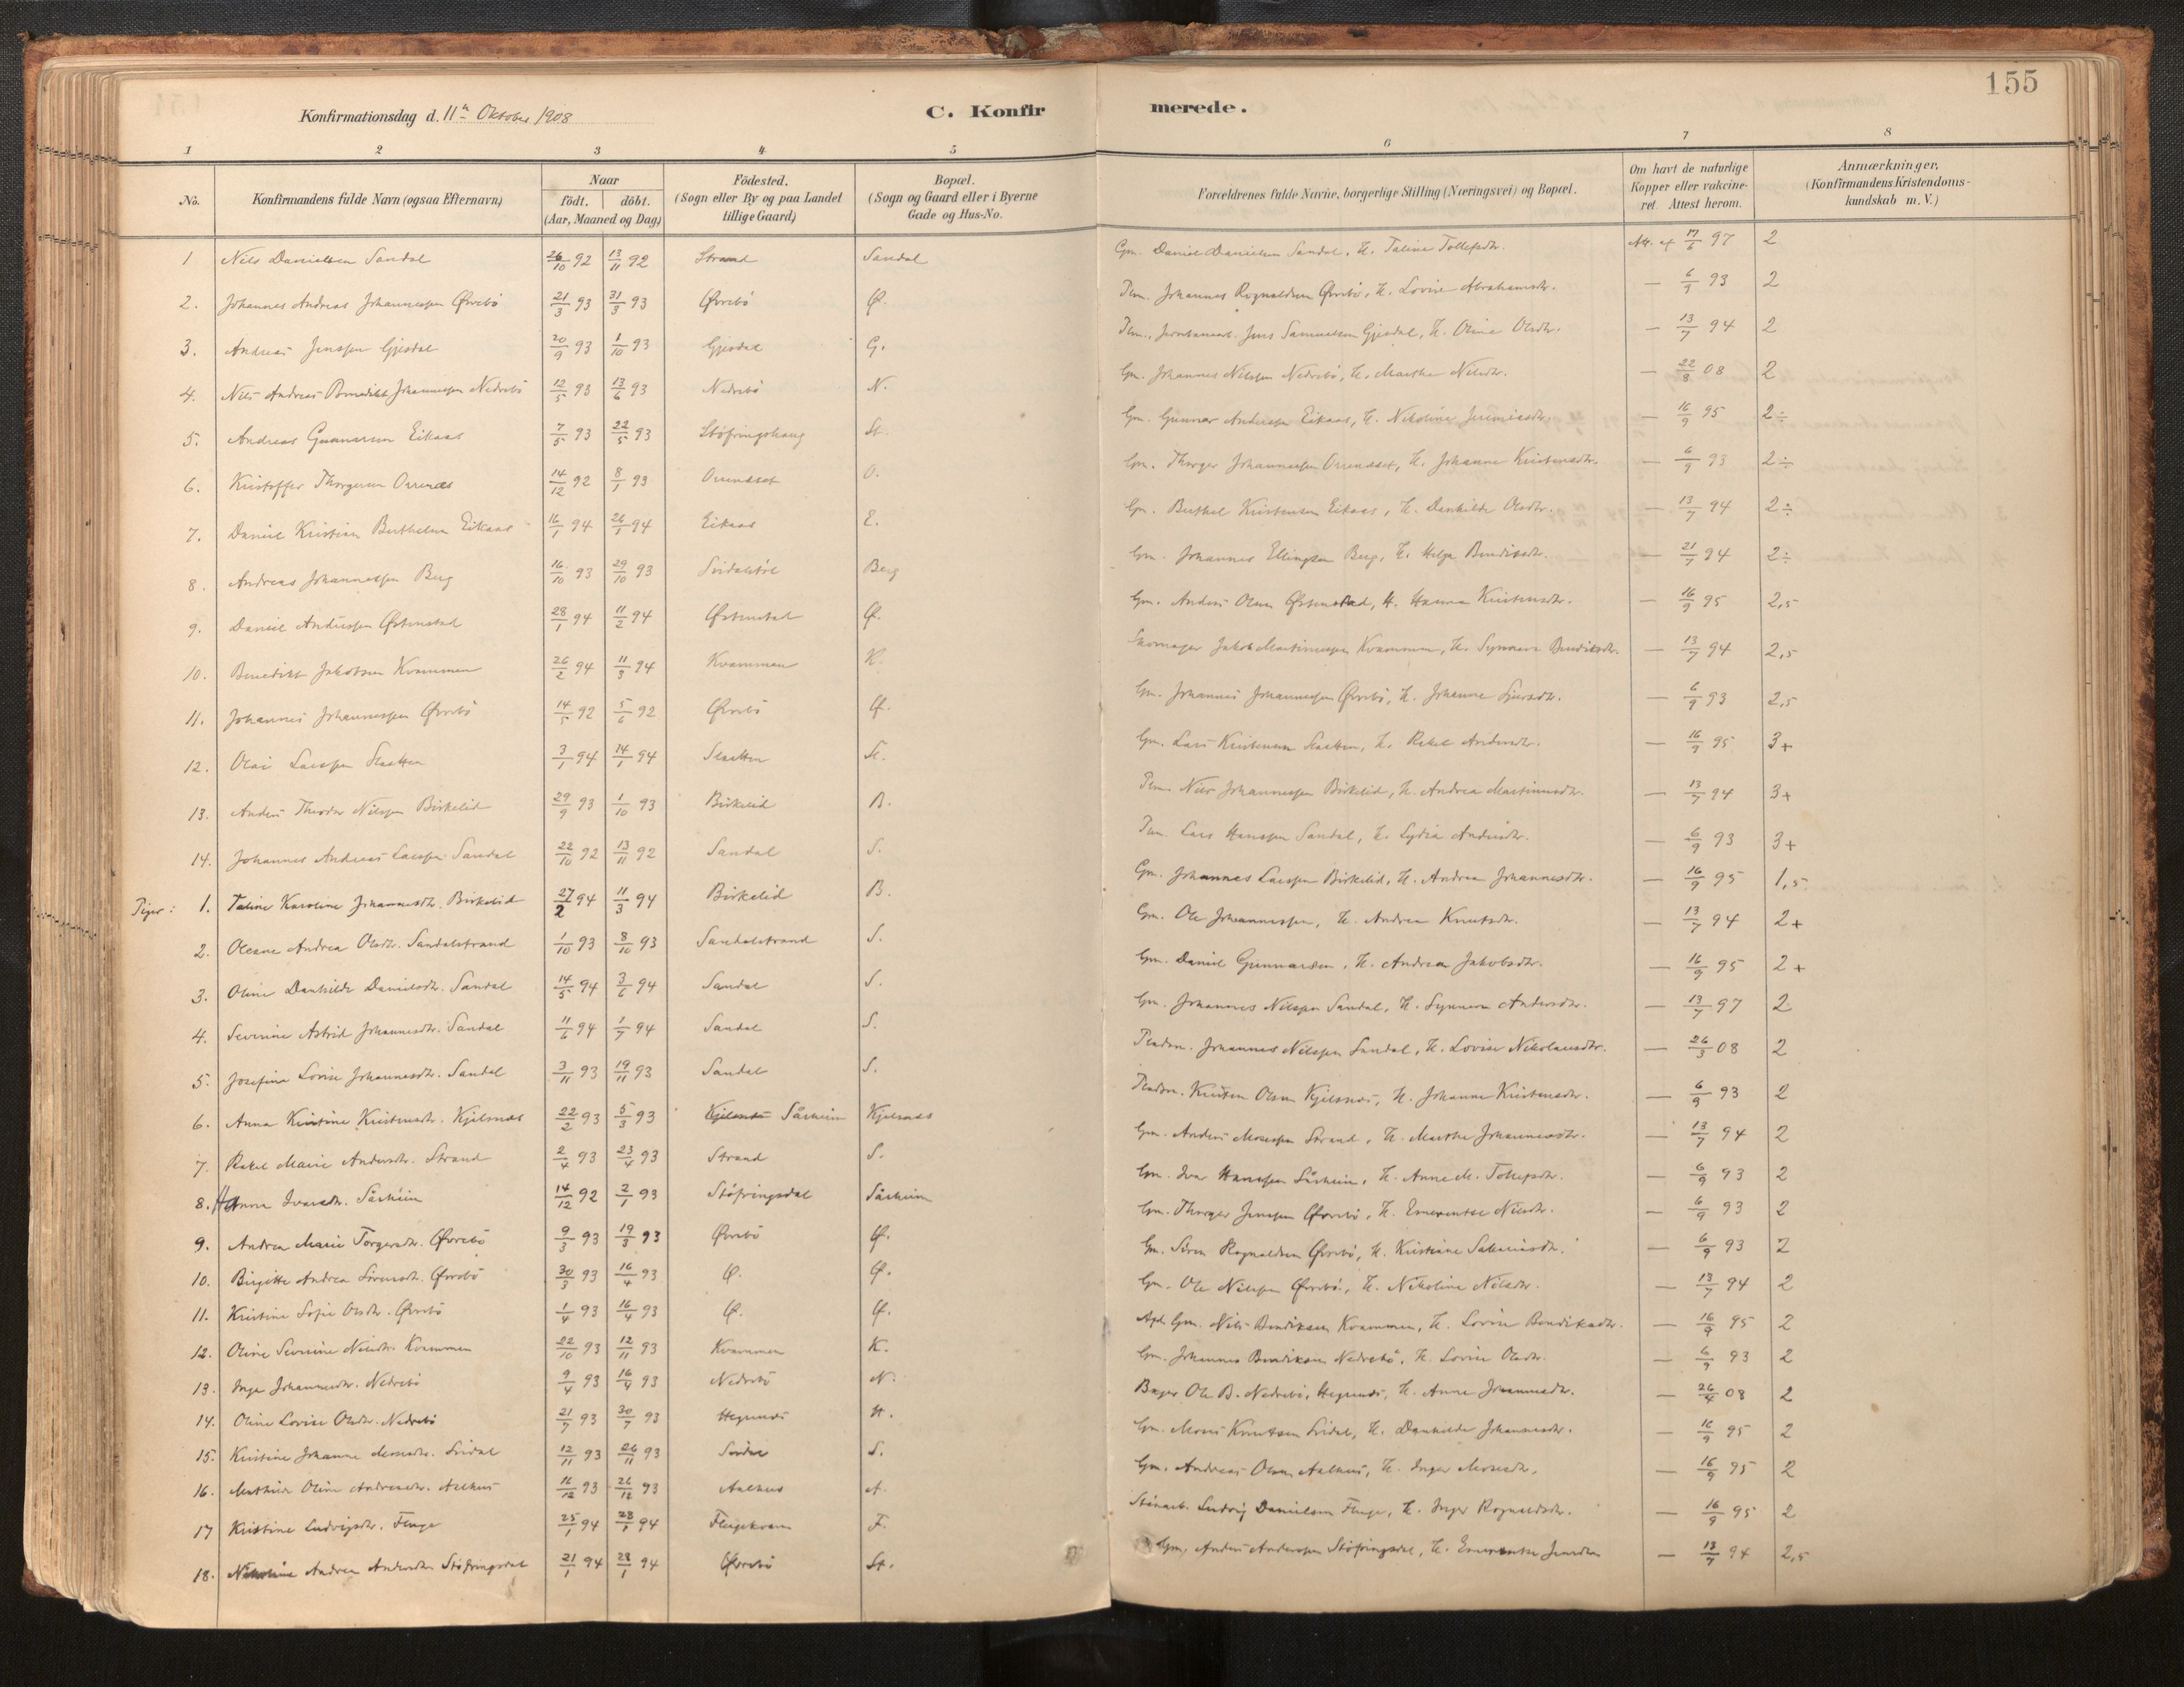 155
Konfirmationsdag d. 11te Oktober 1908
C. Konfirmerede.
1 2 3 4 5 6 7 8
No. Konfirmandens fulde Navn (ogsaa Efternavn) Naar født. døbt. (Aar, Maaned og Dag) Födested. (Sogn eller By og paa Landet tillige Gaard) Bopæl. (Sogn og Gaard eller i Byerne Gade og Hus-No. Forældrenes fulde Navne, borgerlige Stilling (Næringsvei) og Bopæl. Om havt de naturlige Kopper eller vakcineret. Attest herom. Anmærkninger. (Konfirmandens Kristendomskundskab m. V.)
1 Nils Danielsen Sandal 26/10 92 13/11 92 Strand Sandal Gm. Daniel Danielsen Sandal, H. Taline Tollefsdtr. Att. af 17/6 97 2
2. Johannes Andreas Johannessen Øvrebö 21/3 93 31/3 93 Øvrebö Ø. Plm. Johannes Rognaldsen Øvrebö, H. Lovise Abrahamsdtr. — 6/9 93 2
3. Andreas Jenssen Gjesdal 20/9 93 1/10 93 Gjesdal G. Plm., Jernbanearb. Jens Samuelsen Gjesdal, H. Oline Olsdtr. — 13/7 94 2
4. Nils Andreas Benedikt Johannessen Nedrebö 12/5 93 13/6 93 Nedrebö N. Gm. Johannes Nilssen Nedrebö, H. Marthe Nilsdtr. — 22/8 08 2
5. Andreas Gunnarsen Eikaas 7/5 93 22/5 93 Støfringshaug St. Gm. Gunnar Anderssen Eikaas, H. Nikoline Jeremiasdtr. — 16/9 95 2÷
6. Kristoffer Thorgersen Orrenæs 14/12 92 8/1 93 Orrenæset O. Gm. Thorger Johannessen Orrenæset, H. Johanne Kristensdtr. — 6/9 93 2÷
7. Daniel Kristian Berthelsen Eikaas 16/1 94 26/1 94 Eikaas E. Gm. Berthel Kristensen Eikaas, H. Dankilde Olsdtr. — 13/7 94 2÷
8. Andreas Johannessen Berg 16/10 93 29/10 93 Svidalstøl Berg Gm. Johannes Ellingsen Berg, H. Helga Bendiksdtr. — 21/7 94 2÷
9. Daniel Anderssen Østenstad 28/1 94 11/2 94 Østenstad Ø. Gm. Anders Olsen Østenstad, H. Hanna Kristensdtr. — 16/9 95 2,5
10. Benedikt Jakobsen Kvammen 26/2 94 11/3 94 Kvammen K. Skomager Jakob Martinussen Kvammen, H. Synneva Bendiksdtr. — 13/7 94 2,5
11. Johannes Johannessen Øvrebö 14/5 92 5/6 92 Øvrebö Ø. Gm. Johannes Johannessen Øvrebö, H. Johanne Sjursdtr. — 6/9 93 2,5
12. Olai Larssen Slaatten 3/1 94 14/1 94 Slaatten Sl. Gm. Lars Kristensen Slaatten, H. Rakel Andersdtr. — 16/9 95 3+
13. Anders Theodor Nilssen Birkelid 29/9 93 1/10 93 Birkelid B. Plm. Nils Johannessen Birkelid, H. Andrea Martinusdtr. — 13/7 94 3+
14. Johannes Andreas Larssen Sandal 22/10 92 13/11 92 Sandal S. Plm. Lars Hanssen Sandal, H. Lydia Andersdtr. — 6/9 93 3+
Piger: 1. Taline Karoline Johannesdtr. Birkelid 27/2 94 11/3 94 Birkelid B. Gm. Johannes Larssen Birkelid, H. Andrea Johannesdtr. — 16/9 95 1,5
2. Oleane Andrea Olsdtr. Sandalstrand 1/10 93 8/10 93 Sandalstrand S. Gm. Ole Johannessen, H. Andrea Knutsdtr. — 13/7 94 2+
3. Oline Dankilde Danielsdtr. Sandal 14/5 94 3/6 94 Sandal S. Gm. Daniel Gunnarsen, H. Andrea Jakobsdtr. — 16/9 95 2+
4. Severine Astrid Johannesdtr. Sandal 11/6 94 1/7 94 Sandal S. Gm. Johannes Nilssen Sandal, H. Synneva Andersdtr. — 13/7 97 2
5. Josefine Lovise Johannesdtr. Sandal 3/11 93 19/11 93 Sandal S. Pladsm. Johannes Nilssen Sandal, H. Lovise Nikolausdtr. — 26/3 08 2
6. Anna Kristine Kristensdtr. Kjelsnæs 22/2 93 5/3 93 Kjelsnæs Sårheim Kjelsnæs Pladsm. Kristen Olsen Kjelsnæs, H. Johanne Kristensdtr. — 6/9 93 2
7. Rakel Marie Andersdtr. Strand 2/4 93 23/4 93 Strand S. Gm. Anders Mosessen Strand, H. Marthe Johannesdtr. — 13/7 94 2
8. Anna Ivarsdtr. Sårheim 14/12 92 2/1 93 Støfringsdal Sårheim Gm. Ivar Hanssen Sårheim, H. Anne M. Tollefsdtr. — 6/9 93 2
9. Andrea Marie Torgersdtr. Øvrebö 9/3 93 19/3 93 Øvrebö Ø. Gm. Thorger Jenssen Øvrebö, H. Emerentse Nilsdtr. — 6/9 93 2
10. Birgitte Andrea Sörensdtr. Øvrebö 30/3 93 16/4 93 Ø. Ø. Gm. Sören Rognaldsen Øvrebö, H. Kristiane Salamonsdtr. — 6/9 93 2
11. Kristine Sofie Olsdtr. Øvrebö 1/4 93 16/4 93 Ø. Ø. Gm. Ole Nilssen Øvrebö, H. Nikoline Nilsdtr. — 13/7 94 2
12. Oline Severine Nilsdtr. Kvammen 22/10 93 12/11 93 Kvammen K. Afd. Gm. Nils Bendiksen Kvammen, H. Lovise Bendiksdtr. — 16/9 95 2
13. Inga Johannesdtr. Nedrebö 9/4 93 16/4 93 Nedrebö N. Gm. Johannes Bendiksen Nedrebö, H. Lovise Olsdtr. — 6/9 93 2
14. Oline Lovise Olsdtr. Nedrebö 21/7 93 30/7 93 Hegrenæs H. Bager Ole B. Nedrebö, Hegrenæs, H. Anne Johannesdtr. — 26/4 08 2
15. Kristine Johanne Mosesdtr. Svidal 12/11 93 26/11 93 Svidal S. Gm. Moses Knutsen Svidal, H. Dankilde Johannesdtr. — 16/9 95 2
16. Mathilde Oline Andreasdtr. Aalhus 16/12 93 26/12 93 Aalhus A. Gm. Andreas Olsen Aalhus, H. Inger Mosesdtr. — 16/9 95 2
17 Kristine Ludvigsdtr. Fluge 25/1 94 28/1 94 Flugekvam F. Stenarb. Ludvig Danielsen Fluge, H. Inger Rognaldsdtr. — 16/9 95 2
18. Nikoline Andrea Andersdtr. Støfringsdal 21/1 94 28/1 94 Øvrebö St. Gm. Anders Anderssen Støfringsdal, H. Emerentse Jensdtr — 13/7 94 2,5